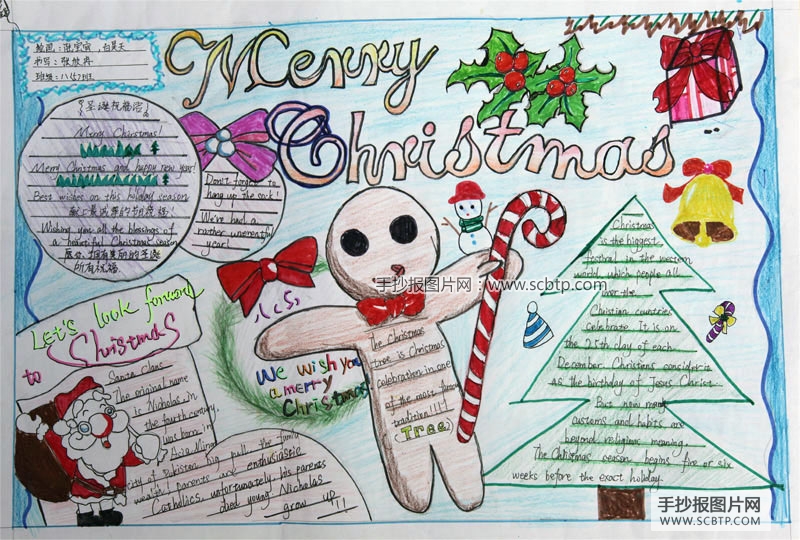 绘画:张宝宸 白昊天
书写:张欣冉
班级:八(5)班
Merry
Christmas
《圣诞祝福语》
Merry Christmas!
Merry Christmas and happy new year!
Best wishes on this holiday season
献上最诚挚的节日祝福
Wishing you all the blessings of
a beautiful Christmas season
愿你拥有美丽的圣诞
所有祝福
Don't forget to
hang up the sock!
We've had a
rather uneventful
year!
Let's look forward
to Christmas
Santa Claus
The original name
is Nicholas, in
the fourth century,
was born in
Asia Minor
city of
the family
wealth, parents are enthusiastic
Catholics, unfortunately, his parents
died young Nicholas
grow up!!
八(5)
We wish you
a merry
Christmas
The Christmas
tree is Christmas
celebration in one
of the most famous
tradition!!!!
(Tree)
Christmas
is the biggest
festival in the western
world which people all
over the
Christian countries
celebrate. It is on
the 25th day of each
December Christians consider it
as the birthday of Jesus Christ.
But now many
customs and habits are
beyond religious meaning.
The Christmas season begins five or six
weeks before the exact holiday.
手抄报图片网:www.scbtp.com
手抄报图片网
WWW.SCBTP.COM